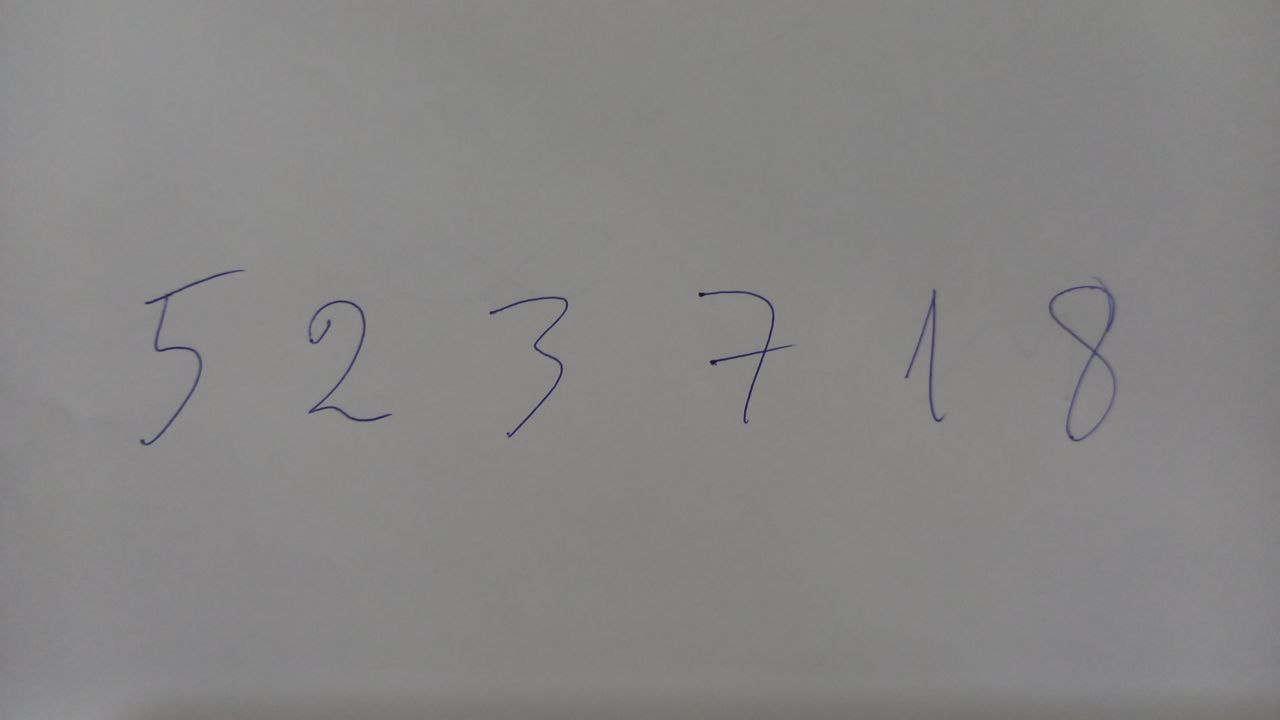 5 2 3 7 1 8